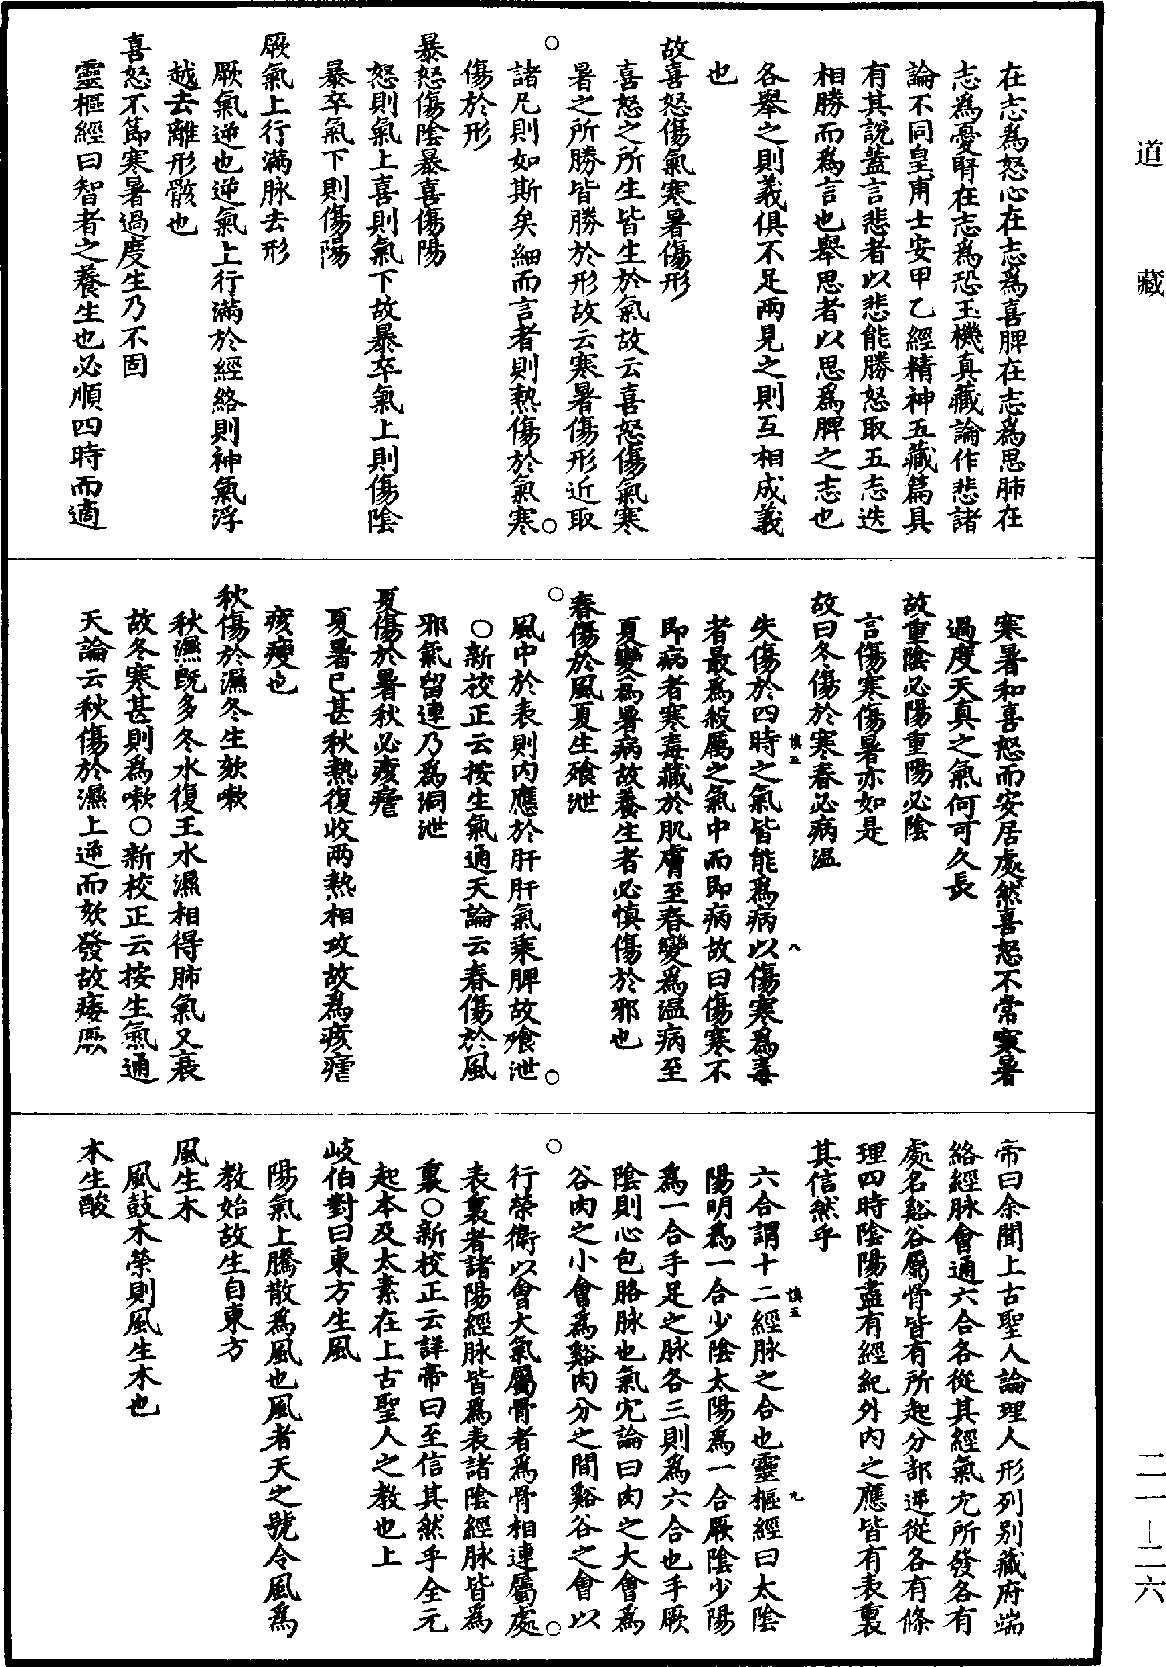 道藏
在志為怒心在志為喜脾在志為思肺在
志為憂腎在志為恐玉機真藏論作悲諸
論不同皇甫士安甲乙經精神五藏篇具
有其說蓋言悲者以悲能勝怒取五志迭
相勝而為言也舉思者以思為脾之志也
各舉之則義俱不足兩見之則互相成義
也
故喜怒傷氣寒暑傷形
喜怒之所生皆生於氣故云喜怒傷氣寒
暑之所勝皆勝於形故云寒暑傷形近取
諸凡則如斯矣細而言者則熱傷於氣寒
傷於形
暴怒傷陰暴喜傷陽
怒則氣上喜則氣下故暴卒氣上則傷陰
暴卒氣下則傷陽
厥氣上行滿脉去形
厥氣逆也逆氣上行滿於經絡則神氣浮
越去離形骸也
喜怒不節寒暑過度生乃不固
靈樞經曰智者之養生也必順四時而適
寒暑和喜怒而安居處然喜怒不常寒暑
過度天真之氣何可久長
故重陰必陽重陽必陰
言傷寒傷暑亦如是
故曰冬傷於寒春必病溫
慎五 八
失傷於四時之氣皆能為病以傷寒為毒
者最為殺厲之氣中而即病故曰傷寒不
即病者寒毒藏於肌膚至春變為溫病至
夏變為暑病故養生者必慎傷於邪也
春傷於風夏生飧泄
風中於表則內應於肝肝氣乘脾故飧泄
○新校正云按生氣通天論云春傷於風
邪氣留連乃為洞泄
夏傷於暑秋必痎瘧
夏暑已甚秋熱復收兩熱相攻故為痎瘧
痎瘦也
秋傷於濕冬生欬嗽
秋濕既多冬水復王水濕相得肺氣又衰
故冬寒甚則為嗽○新校正云按生氣通
天論云秋傷於濕上逆而欬發故痿厥
帝曰余聞上古聖人論理人形列別藏府端
絡經脉會通六合各從其經氣穴所發各有
處名谿谷屬骨皆有所起分部逆從各有條
理四時陰陽盡有經紀外內之應皆有表裏
其信然乎
慎五 九
六合謂十二經脉之合也靈樞經曰太陰
陽明為一合少陰太陽為一合厥陰少陽
為一合手足之脉各三則為六合也手厥
陰則心包胳脉也氣穴論曰肉之大會為
谷肉之小會為谿肉分之間谿谷之會以
行榮衛以會大氣屬骨者為骨相連屬處
表裏者諸陽經脉皆為表諸陰經脉皆為
裏○新校正云詳帝曰至信其然乎全元
起本及太素在上古聖人之教也上
岐伯對曰東方生風
陽氣上騰散為風也風者天之號令風為
教始故生自東方
風生木
風鼓木榮則風生木也
木生酸
二一—二六